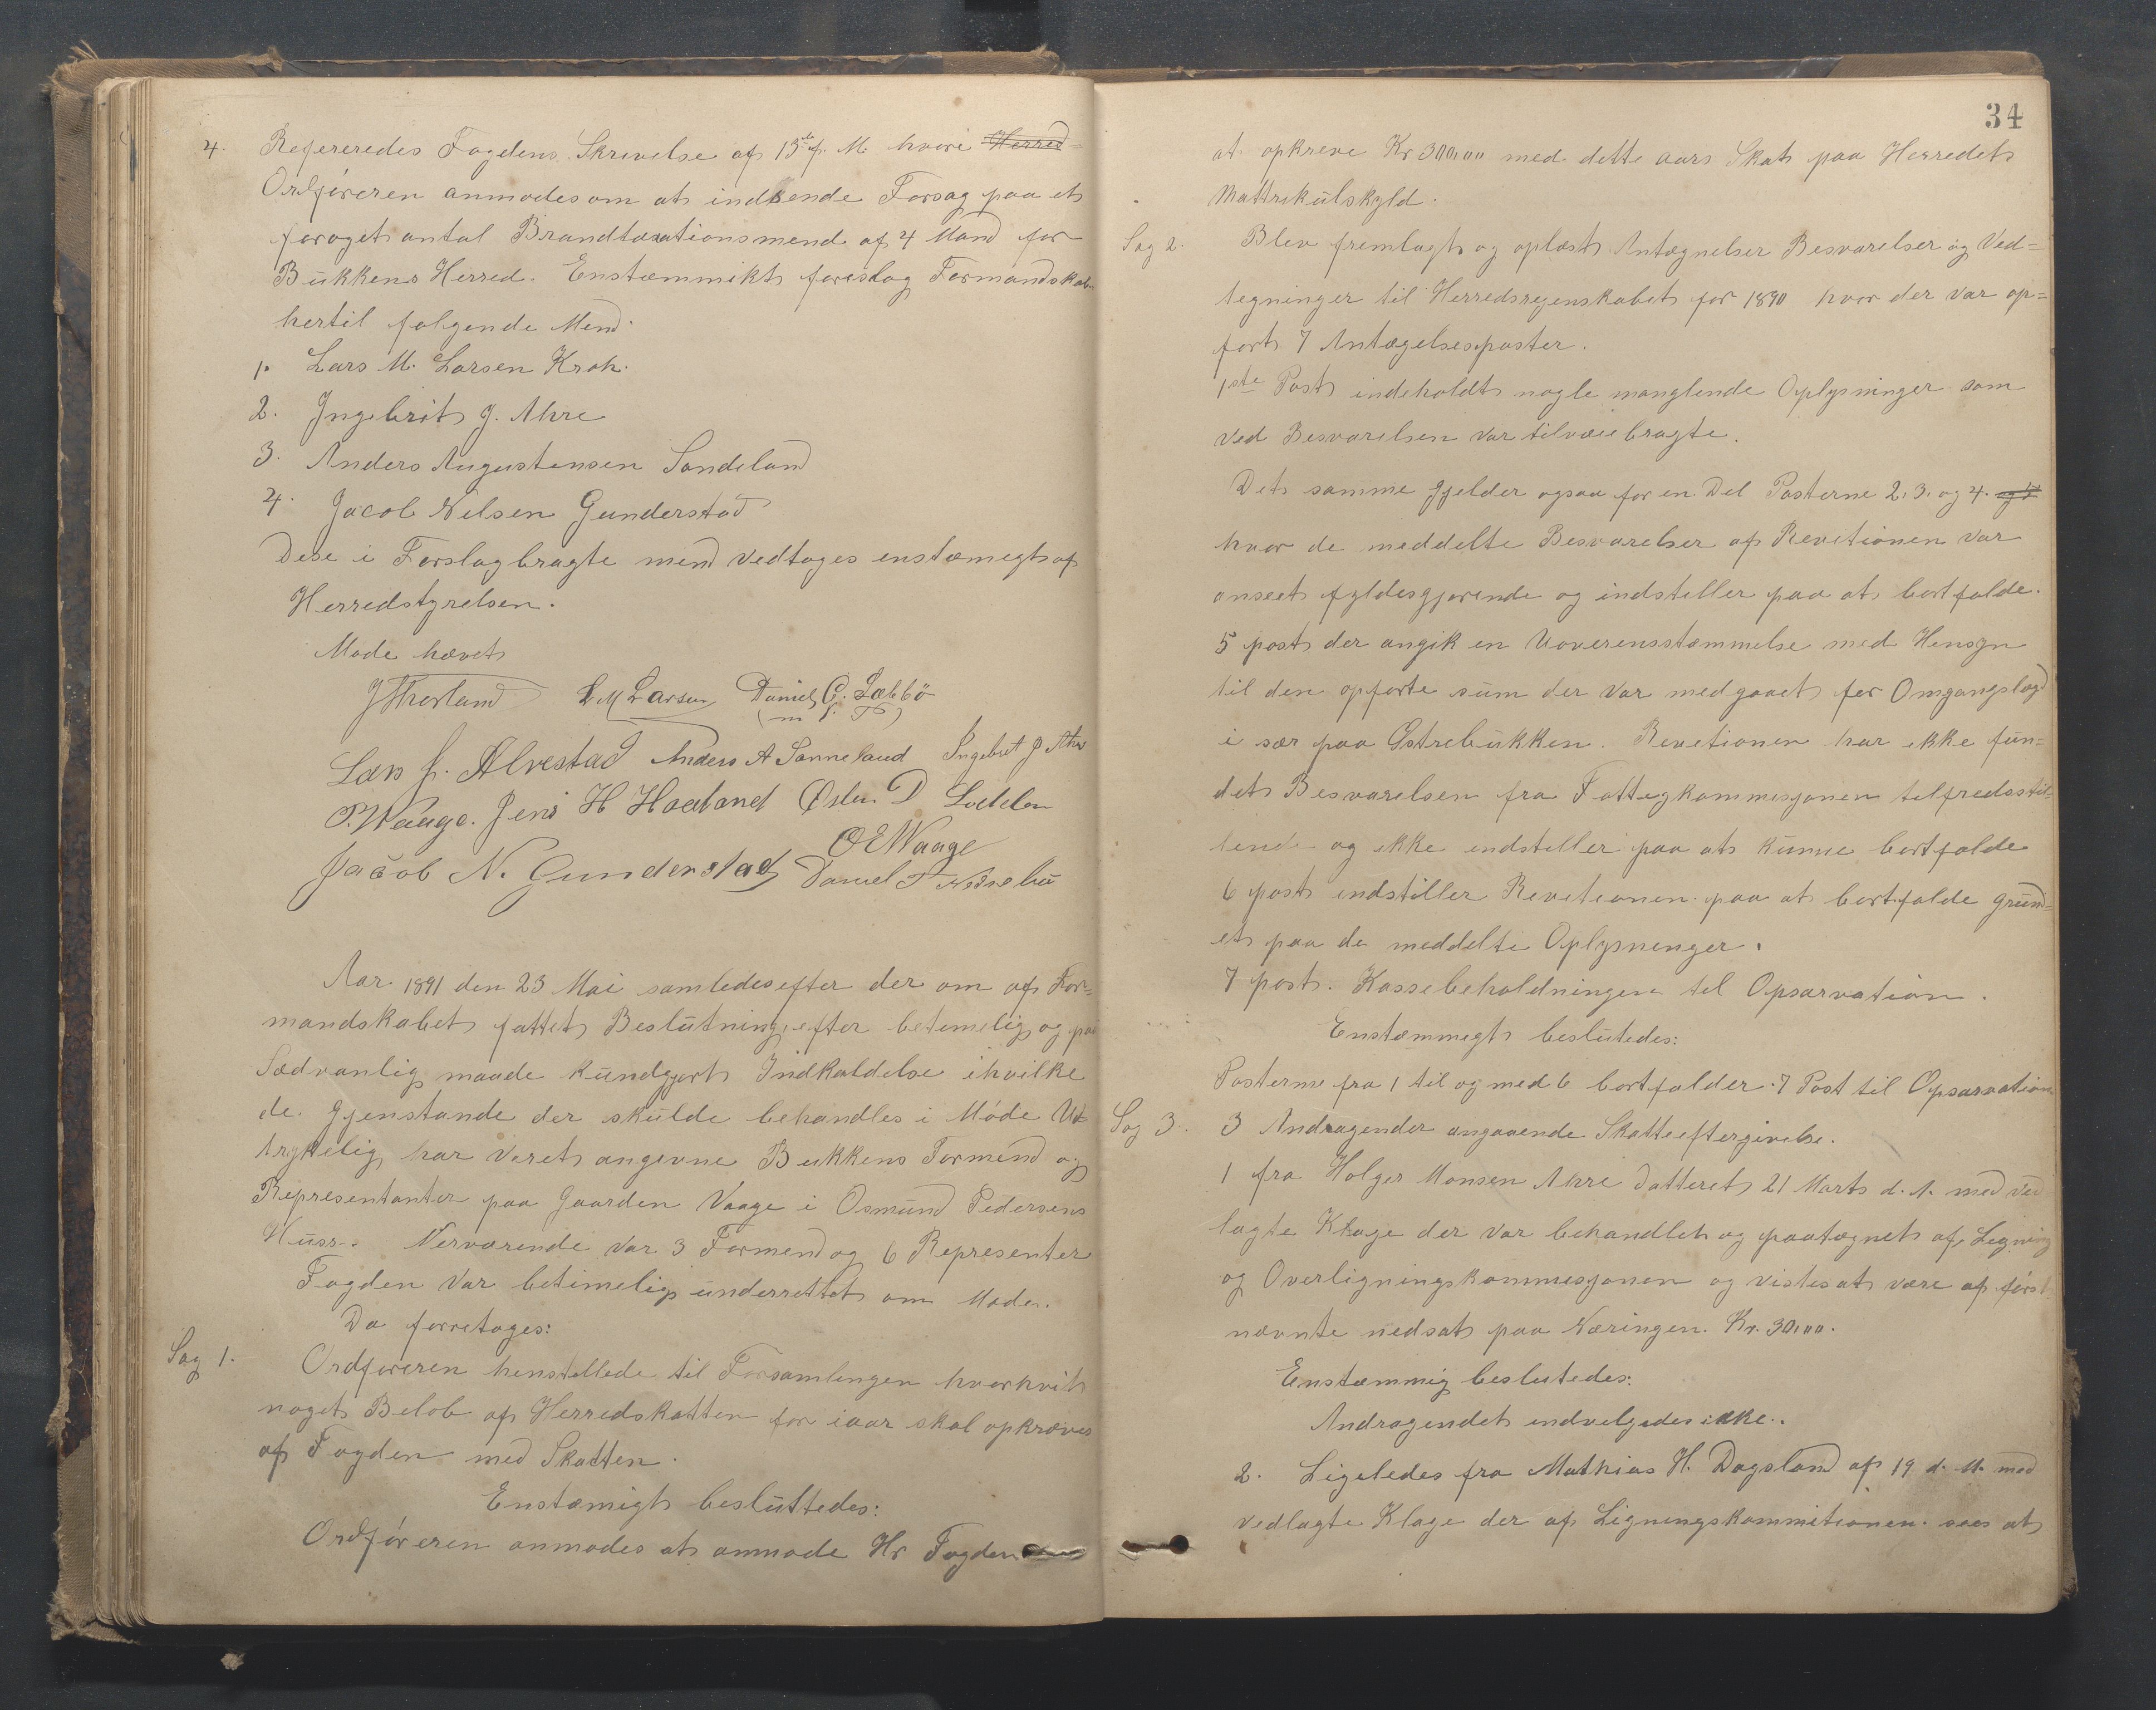 4. Refereredes Fogdens Skrivelse af 15de f. M. hvori Herred-
Ordføreren anmodes om at indsende Forsag paa et
foröget antal Brandtaxationsmend af 4 Mand for
Bukkens Herred. Enstæmmikt foreslog Formandskab
hertil følgende Mend:
1. Lars M. Larsen Kroh.
2. Ingebrit J. Ahre
3. Anders Augustensen Sandeland
4. Jacob Nilsen Gunderstad
Dese i Forslag bragte mend vedtoges enstæmegt af
Herredstyrelsen.
Møde hævet
L M Larsen Daniel G. Læbbö
(m. f. P)
Lars J. Alvestad Anders A Sanneland Ingebret J Ahre
P. Waage. Jens H Hoeland Osm. D
O E Waage
Jacob N. Gunderstad Daniel T Nedrebø
Aar 1891 den 23 Mai samledes efter der om af For=
mandskabet fattet Beslutning, efter betimelig og paa
Sædvanlig maade kundgjort Indkaldelse i hvilke
de Gjenstande der skulde behandles i Möde Ud-
trykkelig har Veret angevne Bukkens Formend og
Representanter paa Gaarden Vaage i Osmund Pedersens
Huus. Nerværende var 3 Formend og 6 Represænter
Fogden var betimelig underrettet om Møde.
Da forretoges:
Sag 1. Ordføreren henstellede til Forsamlingen hvorhvit
noget Belöb af Herredskatten for iaar skal opkræves
af Fogden med Skatten.
Enstemigt besluttedes:
Ordföreren anmodes at anmode Hr Fogden
34
at opkreve Kr 300,00 med dette aars Skat paa Herredets
Mattrikulskyld.
Sag 2. Blev fremlagt og oplæst Antægnelser Besvarelser og Ved=
tegninger til Herredsregenskabet for 1890 hvor der var op=
fort 7 Antægelsesposter.
1ste Post indeholdt nogle manglende Oplysninger som
ved Besvarelsen var tilveiebragte.
Det samme gjelder ogsaa for en Del Posterne 2. 3. og 4. og 5
hvor de meddelte Besvarelser af Revetionen var
anseet fyldesgjørende og indsteller paa at bortfalde.
5 post der angik en Uoverensstæmmelse med Hensyn
til den opførte sum der var medgaaet for Omgangslægd
i sær paa Østrebukken. Revetionen har ikke fun=
det Besvarelsen fra Fattegkommesjonen telfredsstil=
lende og ikke endsteller paa at kunne bortfalde
6 post indstiller Revetionen paa at bortfalde grund=
et paa de meddelte Oplysnenger.
7 post. Kassebeholdningen tel Opsarvation.
Enstæmmegt beslutedes:
Posterne fra 1 til og med 6 bortfalder. 7 Post til Opsarvation
Sag 3. 3 Andragender angaaende Skatteeftergivelse.
1 fra Holger Monsen Ahre datteret 21 Marts d. A. med ved
lagte Klage der var behandlet og paategnet af Legning
og Overligningskommesjonen og vistes at være af först
nævnte nedsat paa Næringen. Kr. 30,00.
Enstæmmig beslutedes:
Andragendet endvelgedes ikke.
2. Ligeledes fra Mathias H. Dagsland af 19 d. M. med
vedlagte Klage der af Ligningskommitionen sees at